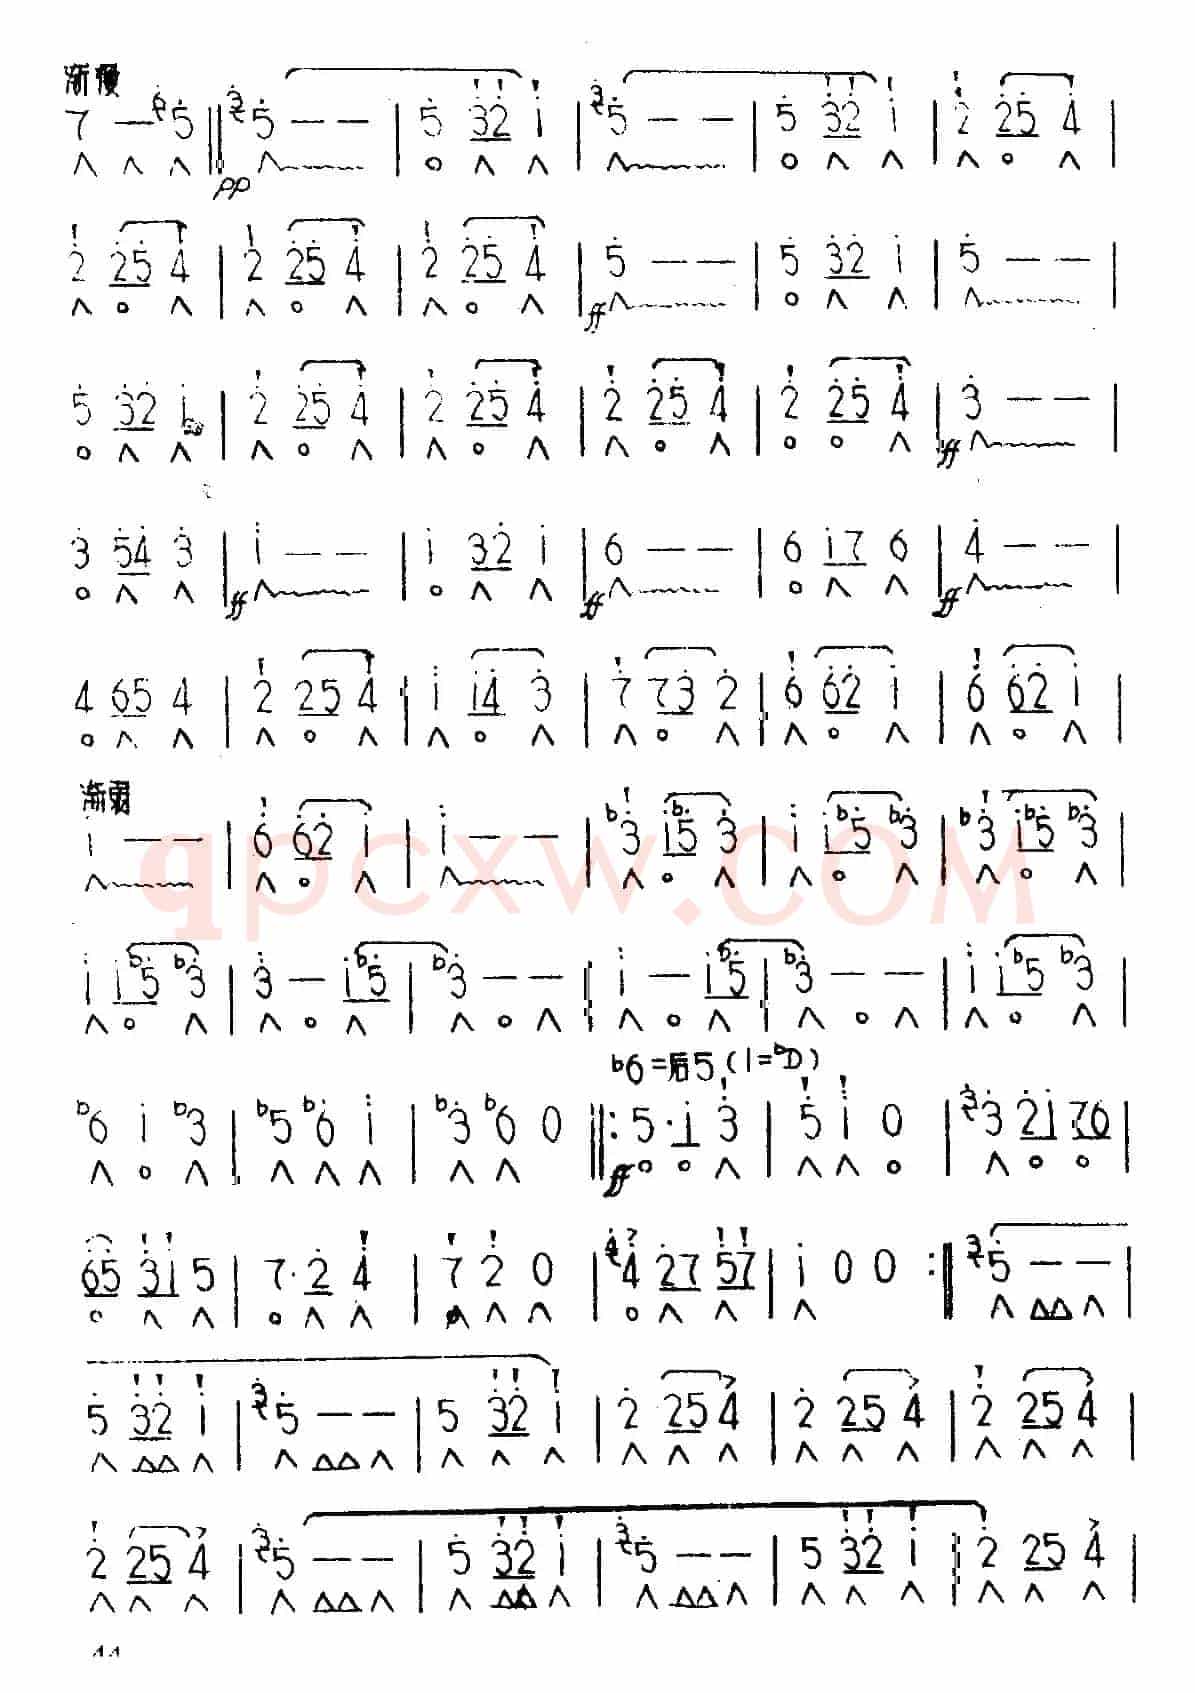 渐慢
7 — 6 5 ‖ 3 5 — — | 5 32 1 | 3 5 — — | 5 32 1 | 2 25 4 |
pp
2 25 4 | 2 25 4 | 2 25 4 | 5 — — | 5 32 1 | 5 — — |
ff
5 32 1 | 2 25 4 | 2 25 4 | 2 25 4 | 2 25 4 | 3 — — |
ff
3 54 3 | 1 — — | 1 32 1 | 6 — — | 6 17 6 | 4 — — |
ff ff ff
4 65 4 | 2 25 4 | 1 14 3 | 7 73 2 | 6 62 1 | 6 62 1 |
渐弱
1 — — | 6 62 1 | 1 — — | b3 1b5 3 | 1 1b5 b3 | b3 1b5 b3 |
qpcxw.com
1 1b5 b3 | 3 — 1b5 | b3 — — | 1 — 1b5 | b3 — — | 1 1b5 b3 |
b6=后5 (1=bD)
b6 1 b3 | b5 b6 1 | b3 b6 0 ‖: 5· 1 3 | 5 1 0 | 3 3 21 76 |
ff
65 31 5 | 7· 2 4 | 7 2 0 | 4 4 27 57 | 1 0 0 :‖ 3 5 — — |
5 32 1 | 3 5 — — | 5 32 1 | 2 25 4 | 2 25 4 | 2 25 4 |
2 25 4 | 3 5 — — | 5 32 1 | 3 5 — — | 5 32 1 | 2 25 4 |
44